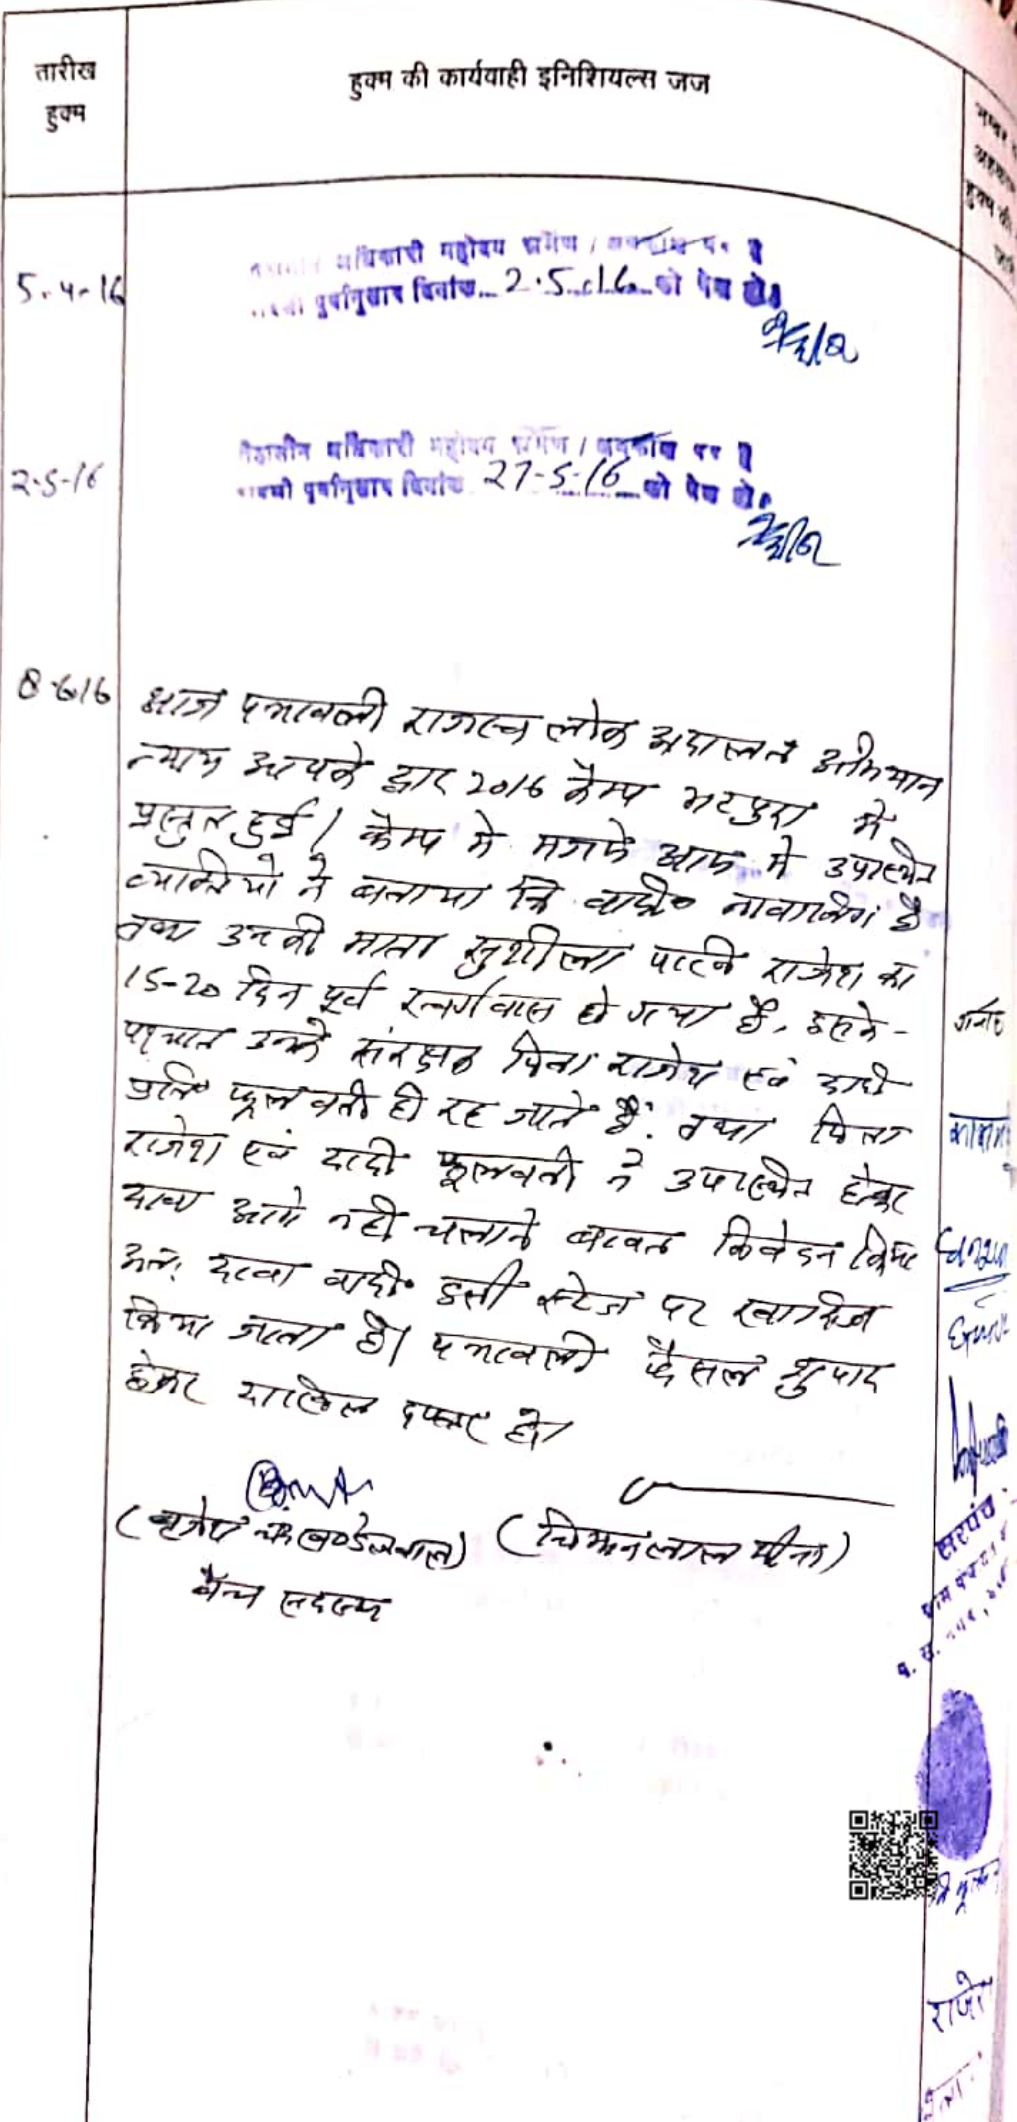 तारीख
हुक्म
हुक्म की कार्यवाही इनिशियल्स जज
हुक्म की
5-4-16
अधिकारी महोदय भ्रमण / अवकाश पर है
पूर्वानुसार दिनांक 2.5.16 को पेश हो।
2-5-16
पीठासीन अधिकारी महोदय भ्रमण / अवकाश पर है
पूर्वानुसार दिनांक 27-5-16 को पेश हो।
8-6-16
आज पत्रावली राजस्व लोक अदालत अभियान
न्याय आपके द्वार 2016 कैम्प भटपुरा में
प्रस्तुत हुई। कैम्प में मजमे आम में उपस्थित
व्यक्तियों ने बताया कि वादी नाबालिग है
तथा उनकी माता सुशीला पत्नि राजेश का
15-20 दिन पूर्व स्वर्गवास हो गया है, इसके
पश्चात उनके संरक्षक पिता राजेश एवं दादी
फूलवती ही रह जाते हैं. तथा पिता
राजेश एवं दादी फूलवती ने उपस्थित होकर
दावा आगे नहीं चलाने बाबत निवेदन किया
अत: दावा वादी इसी स्टेज पर खारिज
किया जाता है। पत्रावली फैसल शुमार
होकर दाखिल दफ्तर हो।
(बृजेश चंद खण्डेलवाल) (चिमनलाल मीना)
बैन्च सदस्य
सरपंच
राजेश